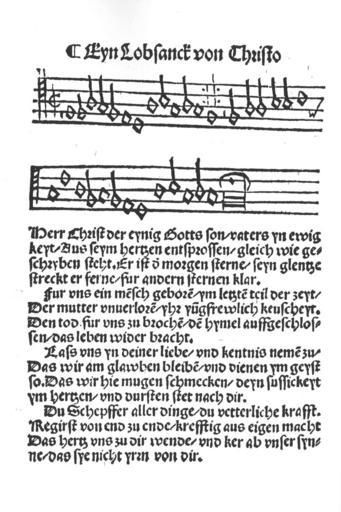 ⸿ Eyn Lobsanck von Christo
Herr Christ der eynig Gotts son/vaters yn ewig
keyt/Aus seym hertzen entsprossen/gleich wie ge-
schryben steht. Er ist ð morgen sterne/seyn glentze
streckt er ferne/fur andern sternen klar.
Fur vns ein mēsch geborē/ym letztē teil der zeyt/
Der mutter vnuerlorē/yhr yūgfrewlich keuscheyt.
Den tod fur vns zu brochē/dē hymel auffgeschlos-
sen/das leben wider bracht.
Lass vns yn deiner liebe/vnd kentnis nemē zu/
Das wir am glawben bleibē/vnd dienen ym geyst
so. Das wir hie mugen schmecken/deyn sussickeyt
ym hertzen/vnd dursten stet nach dir.
Du Schepffer aller dinge/du vetterliche krafft.
Regirst von end zu ende/krefftig aus eigen macht
Das hertz vns zu dir wende/vnd ker ab vnser syn-
ne/das sye nicht yrrn von dir.